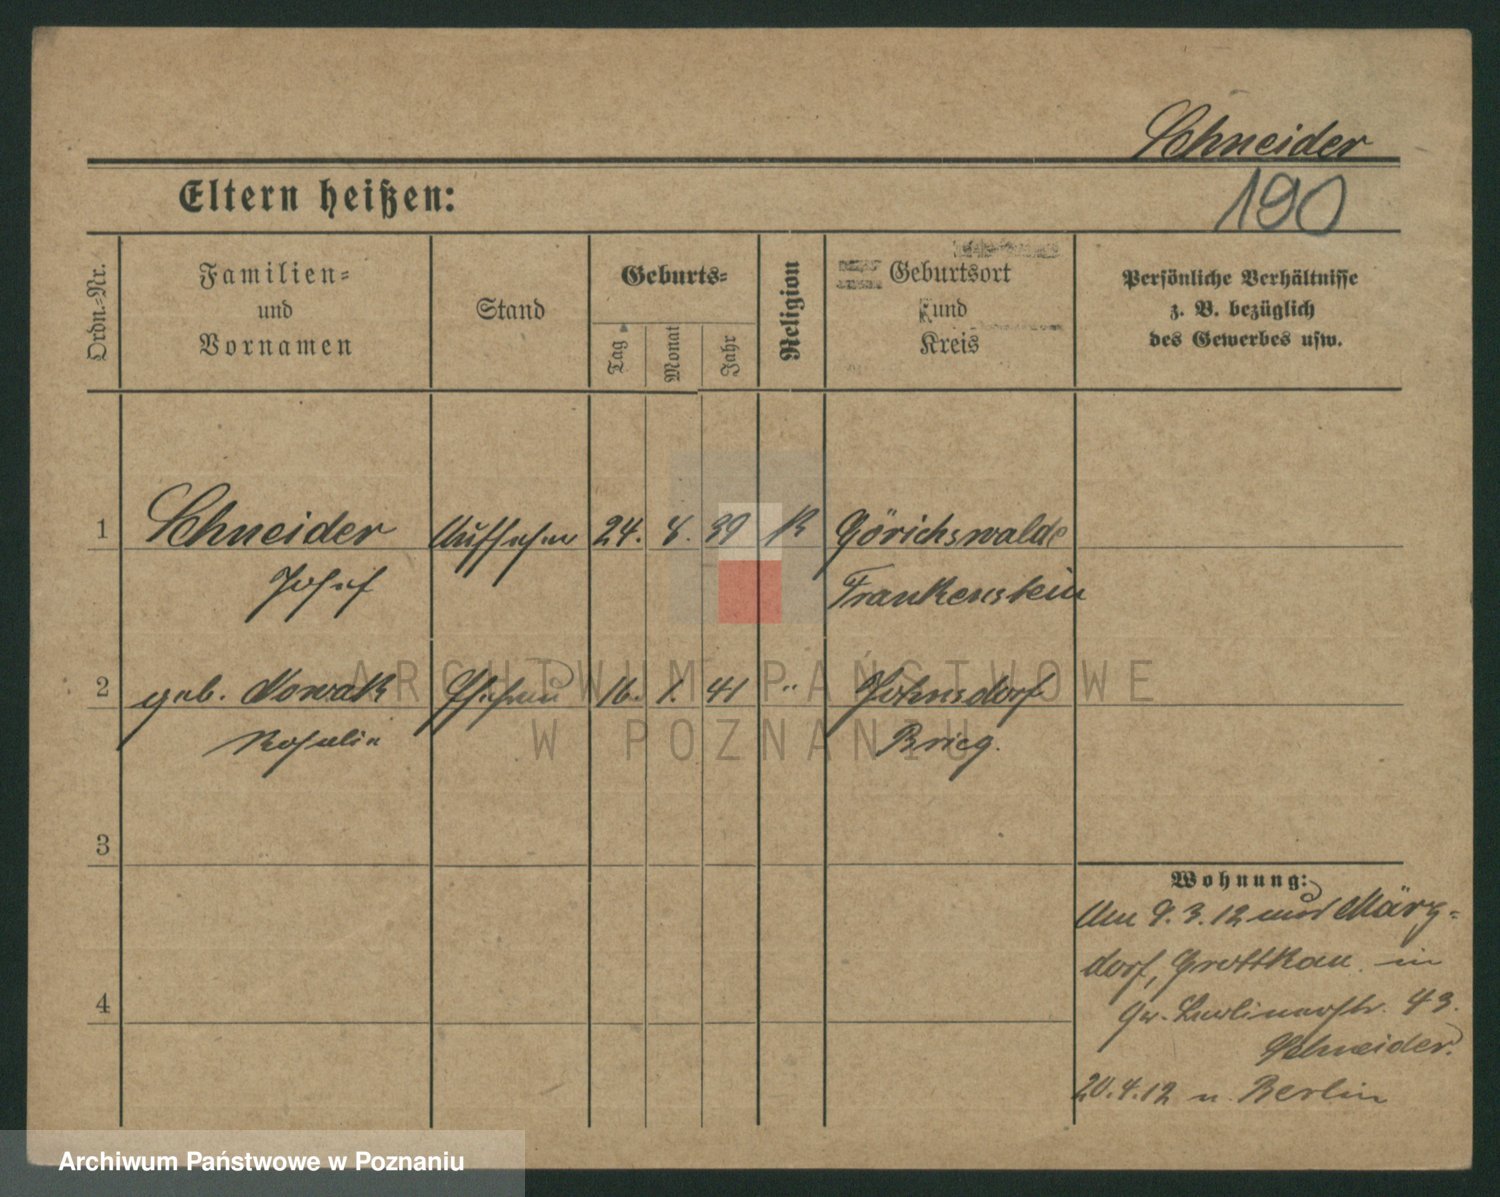 Schneider
190
Eltern heißen:
Ordn.-Nr.
Familien-
und
Vornamen
Stand
Geburts-
Tag
Monat
Jahr
Religion
Geburtsort
und
Kreis
Persönliche Verhältnisse
z. B. bezüglich
des Gewerbes usw.
1 Schneider Aufseher 24. 8. 39 K Görichswalde
Josef Frankenstein
2 geb. Nowak Ehefrau 16. 1. 41 " Johnsdorf
Rosalie Brieg.
3
4
Wohnung:
Am 9.3.12 März-
dorf, Grottkau in
Gr. Berlinerstr. 43.
Schneider.
20.4.12 n. Berlin
ARCHIWUM PAŃSTWOWE
W POZNANIU
Archiwum Państwowe w Poznaniu